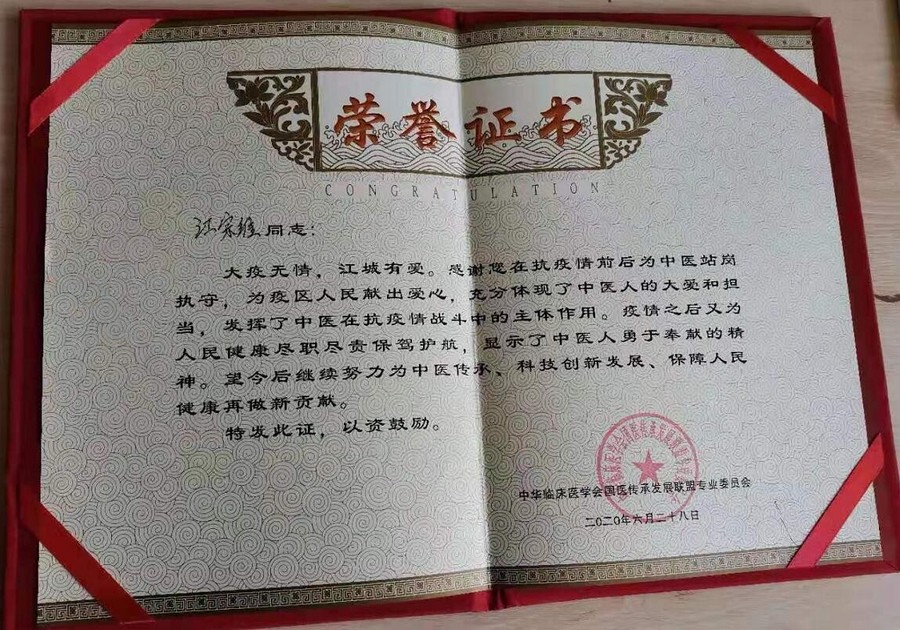 荣誉证书
CONGRATULATION
同志：
大疫无情，江城有爱。感谢您在抗疫情前后为中医站岗
执守，为疫区人民献出爱心，充分体现了中医人的大爱和担
当，发挥了中医在抗疫情战斗中的主体作用。疫情之后又为
人民健康尽职尽责保驾护航，显示了中医人勇于奉献的精
神。望今后继续努力为中医传承、科技创新发展、保障人民
健康再做新贡献。
特发此证，以资鼓励。
中华临床医学会国医传承发展联盟专业委员会
二〇二〇年六月二十八日